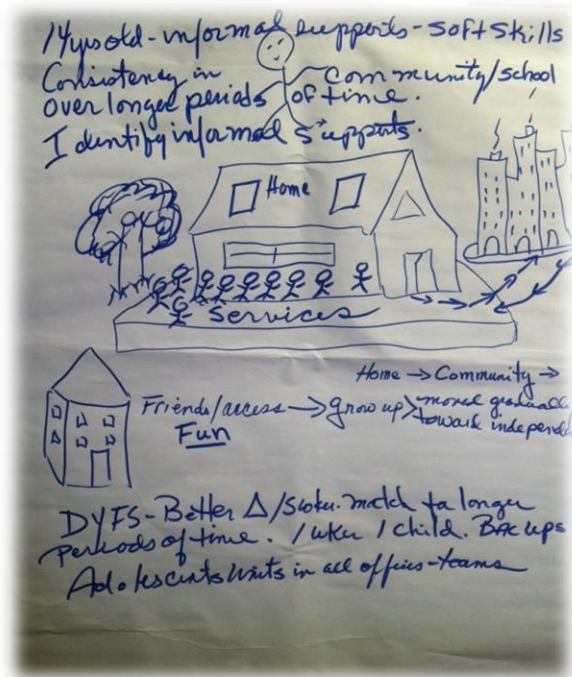 14yrs old - informal supports - soft skills
Consistency in community/school
over longer periods of time.
Identify informal supports.
Home
Services
Home → Community →
Friends/access → grow up > moved gradually
Fun toward
DYFS - Better Δ/ match longer
periods of time. 1 wker 1 child. BAC ups
Adolescents Units in all offices - teams